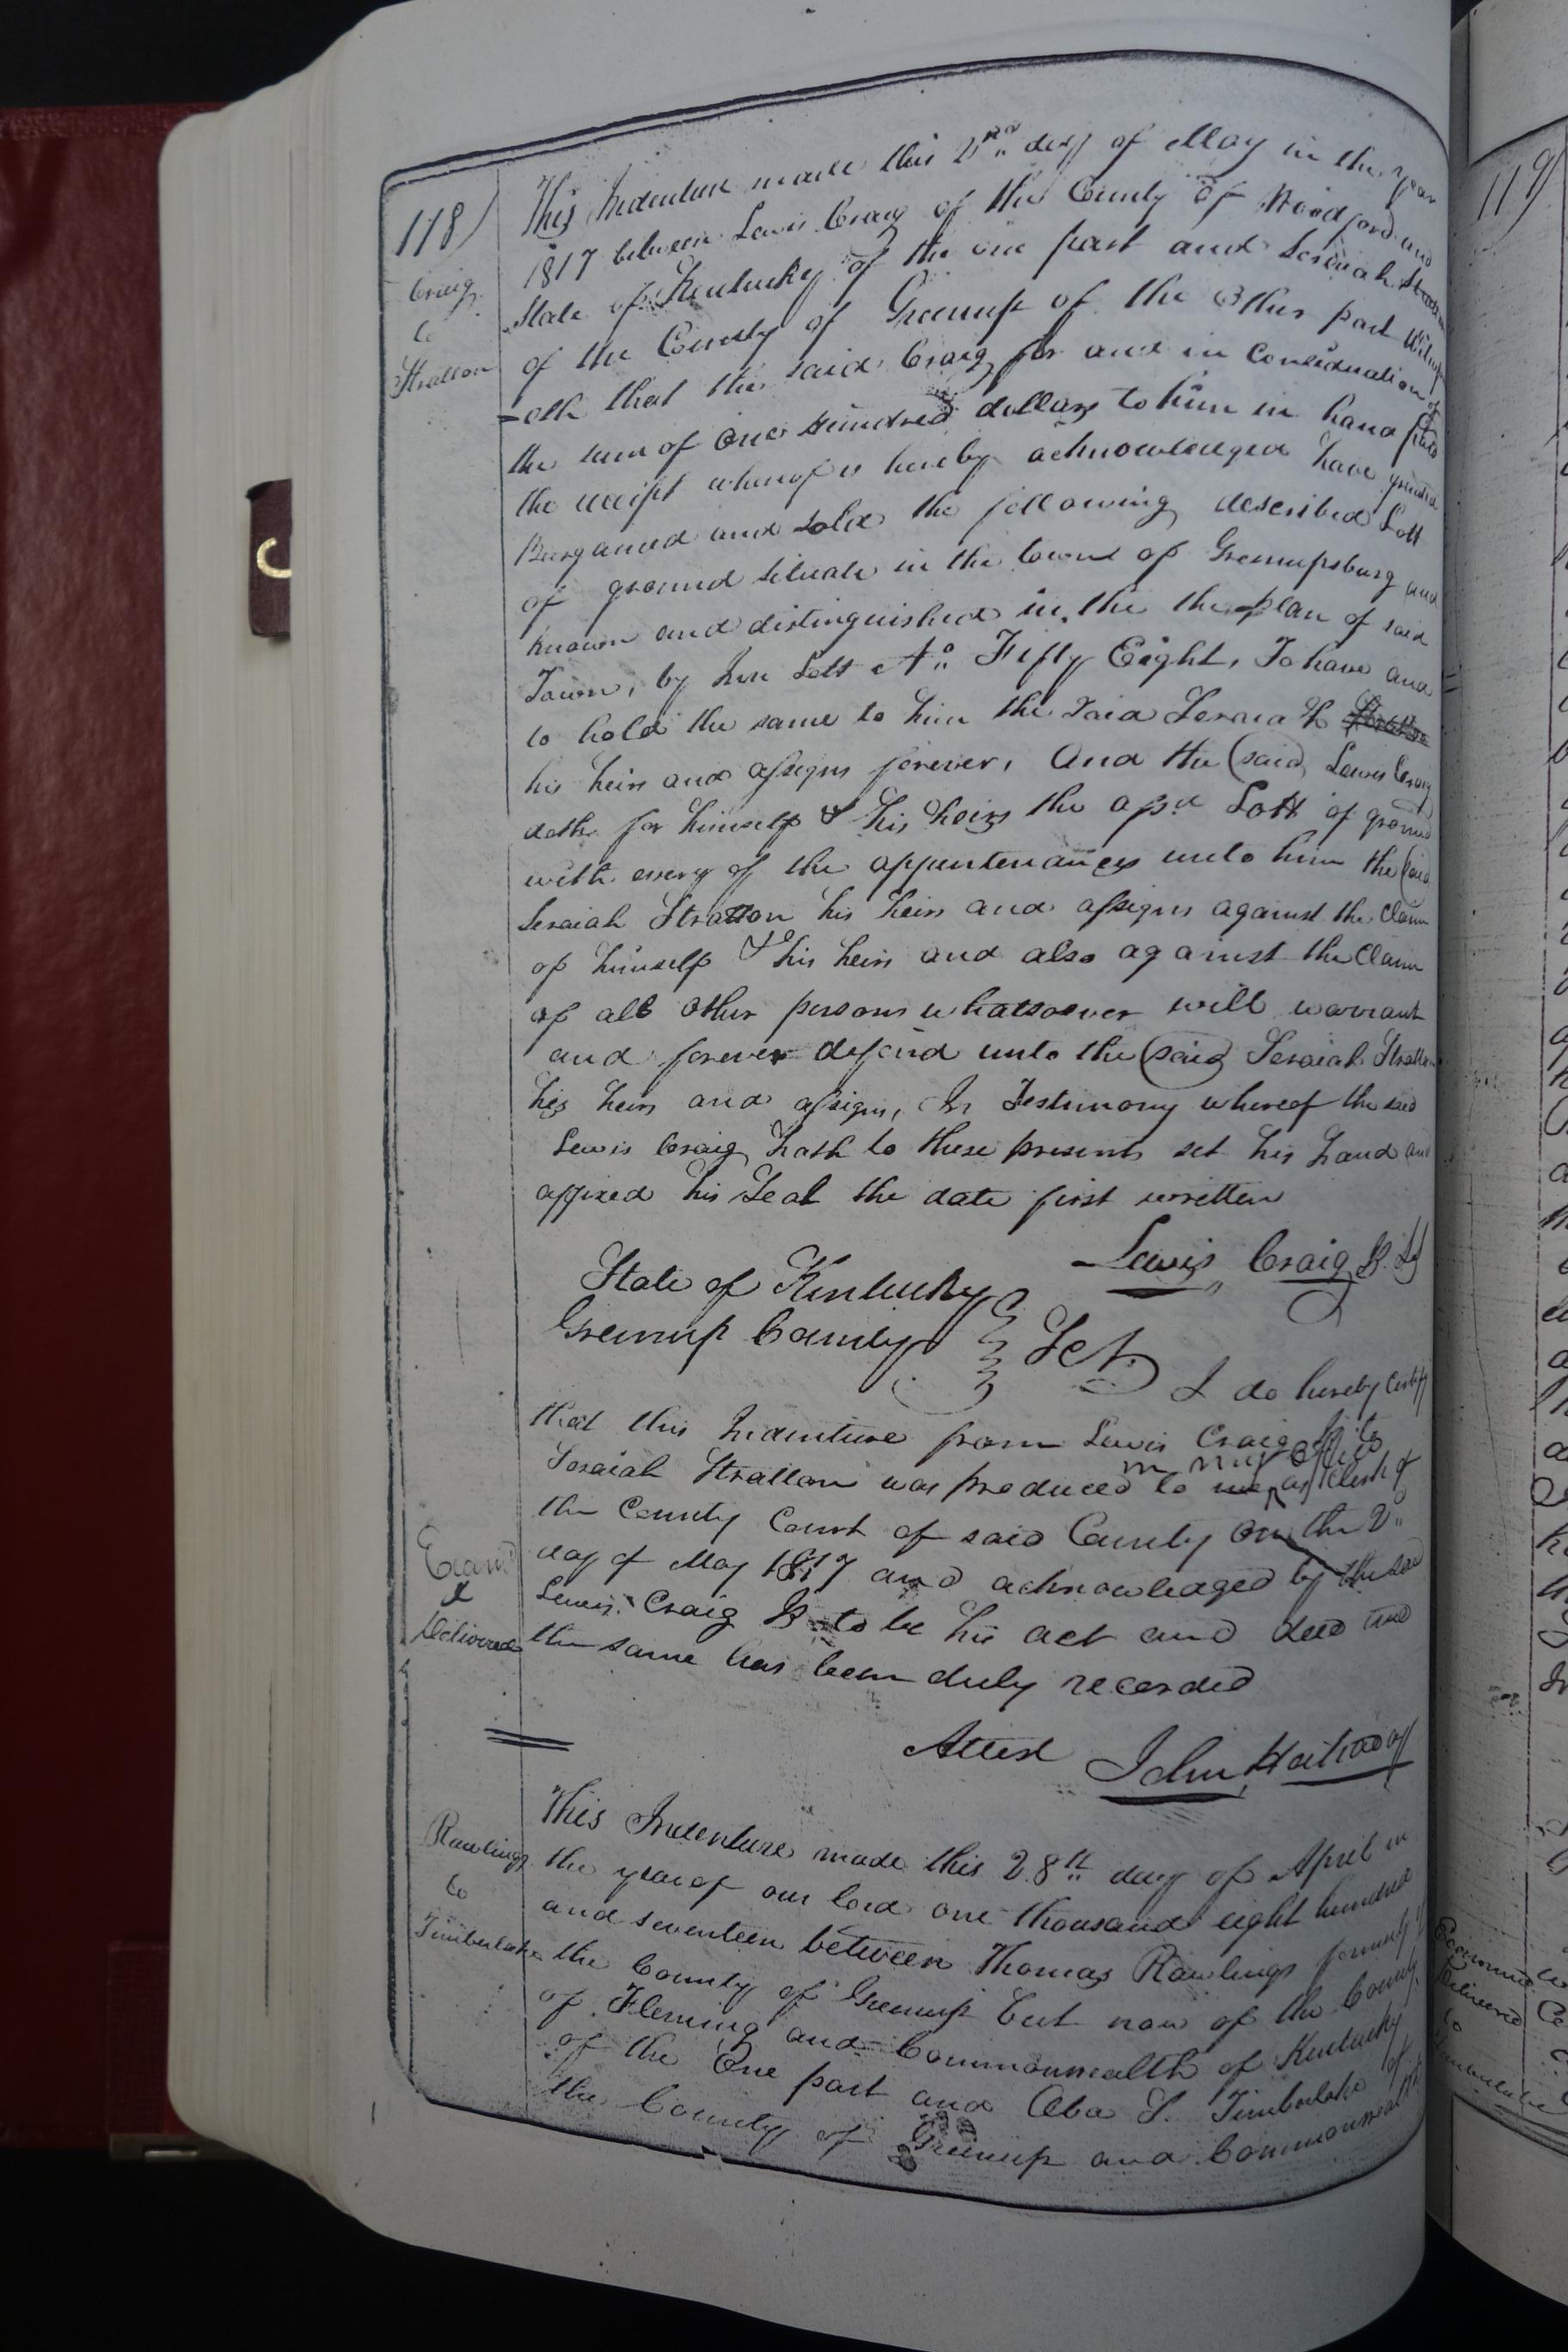 118
Craig
to
Stratton
This Indenture made this 2nd day of May in the year
1817 between Lewis Craig of the County of Woodford and
State of Kentucky of the one part and Seraiah Stratton
of the County of Greenup of the Other part Witness
=eth that the said Craig for and in Consideration of
the sum of One Hundred dollars to him in hand paid
the receipt whereof is hereby acknowledged have granted
Bargained and sold the following described Lott
of ground situate in the town of Greenupsburg and
known and distinguished in the the plan of said
Town, by Inn Lott No Fifty Eight, To have and
to hold the same to him the said Seraiah
his heirs and assigns forever, And the said Lewis Craig
doth for himself & his heirs the afsd Lott of ground
with every of the appurtenances unto him the said
Seraiah Stratton his heirs and assigns against the Claim
of himself & his heirs and also against the Claim
of all other persons whatsoever will warrant
and forever defend unto the said Seraiah Stratton
his heirs and assigns, In Testimony whereof the said
Lewis Craig hath to these presents set his hand and
affixed his Seal the date first written
Lewis Craig
State of Kentucky
Greenup County Sct.
I do hereby certify
that this Indenture from Lewis Craig to
in my office
Seraiah Stratton was produced to me as Clerk of
the County Court of said County on the 2
day of May 1817 and acknowledged by the said
Lewis Craig to be his act and deed and
the same has been duly recorded
Exam'd
&
Delivered
Attest John Hathaway
Rawlings
to
Timberlake
This Indenture made this 28th day of April in
the year of our lord one thousand eight hundred
and seventeen between Thomas Rawlings formerly
the County of Greenup but now of the County
of Fleming and Commonwealth of Kentucky
of the One part and Aba S. Timberlake of
the County of Greenup and Commonwealth
119
Examined
Delivered
to
Timberlake